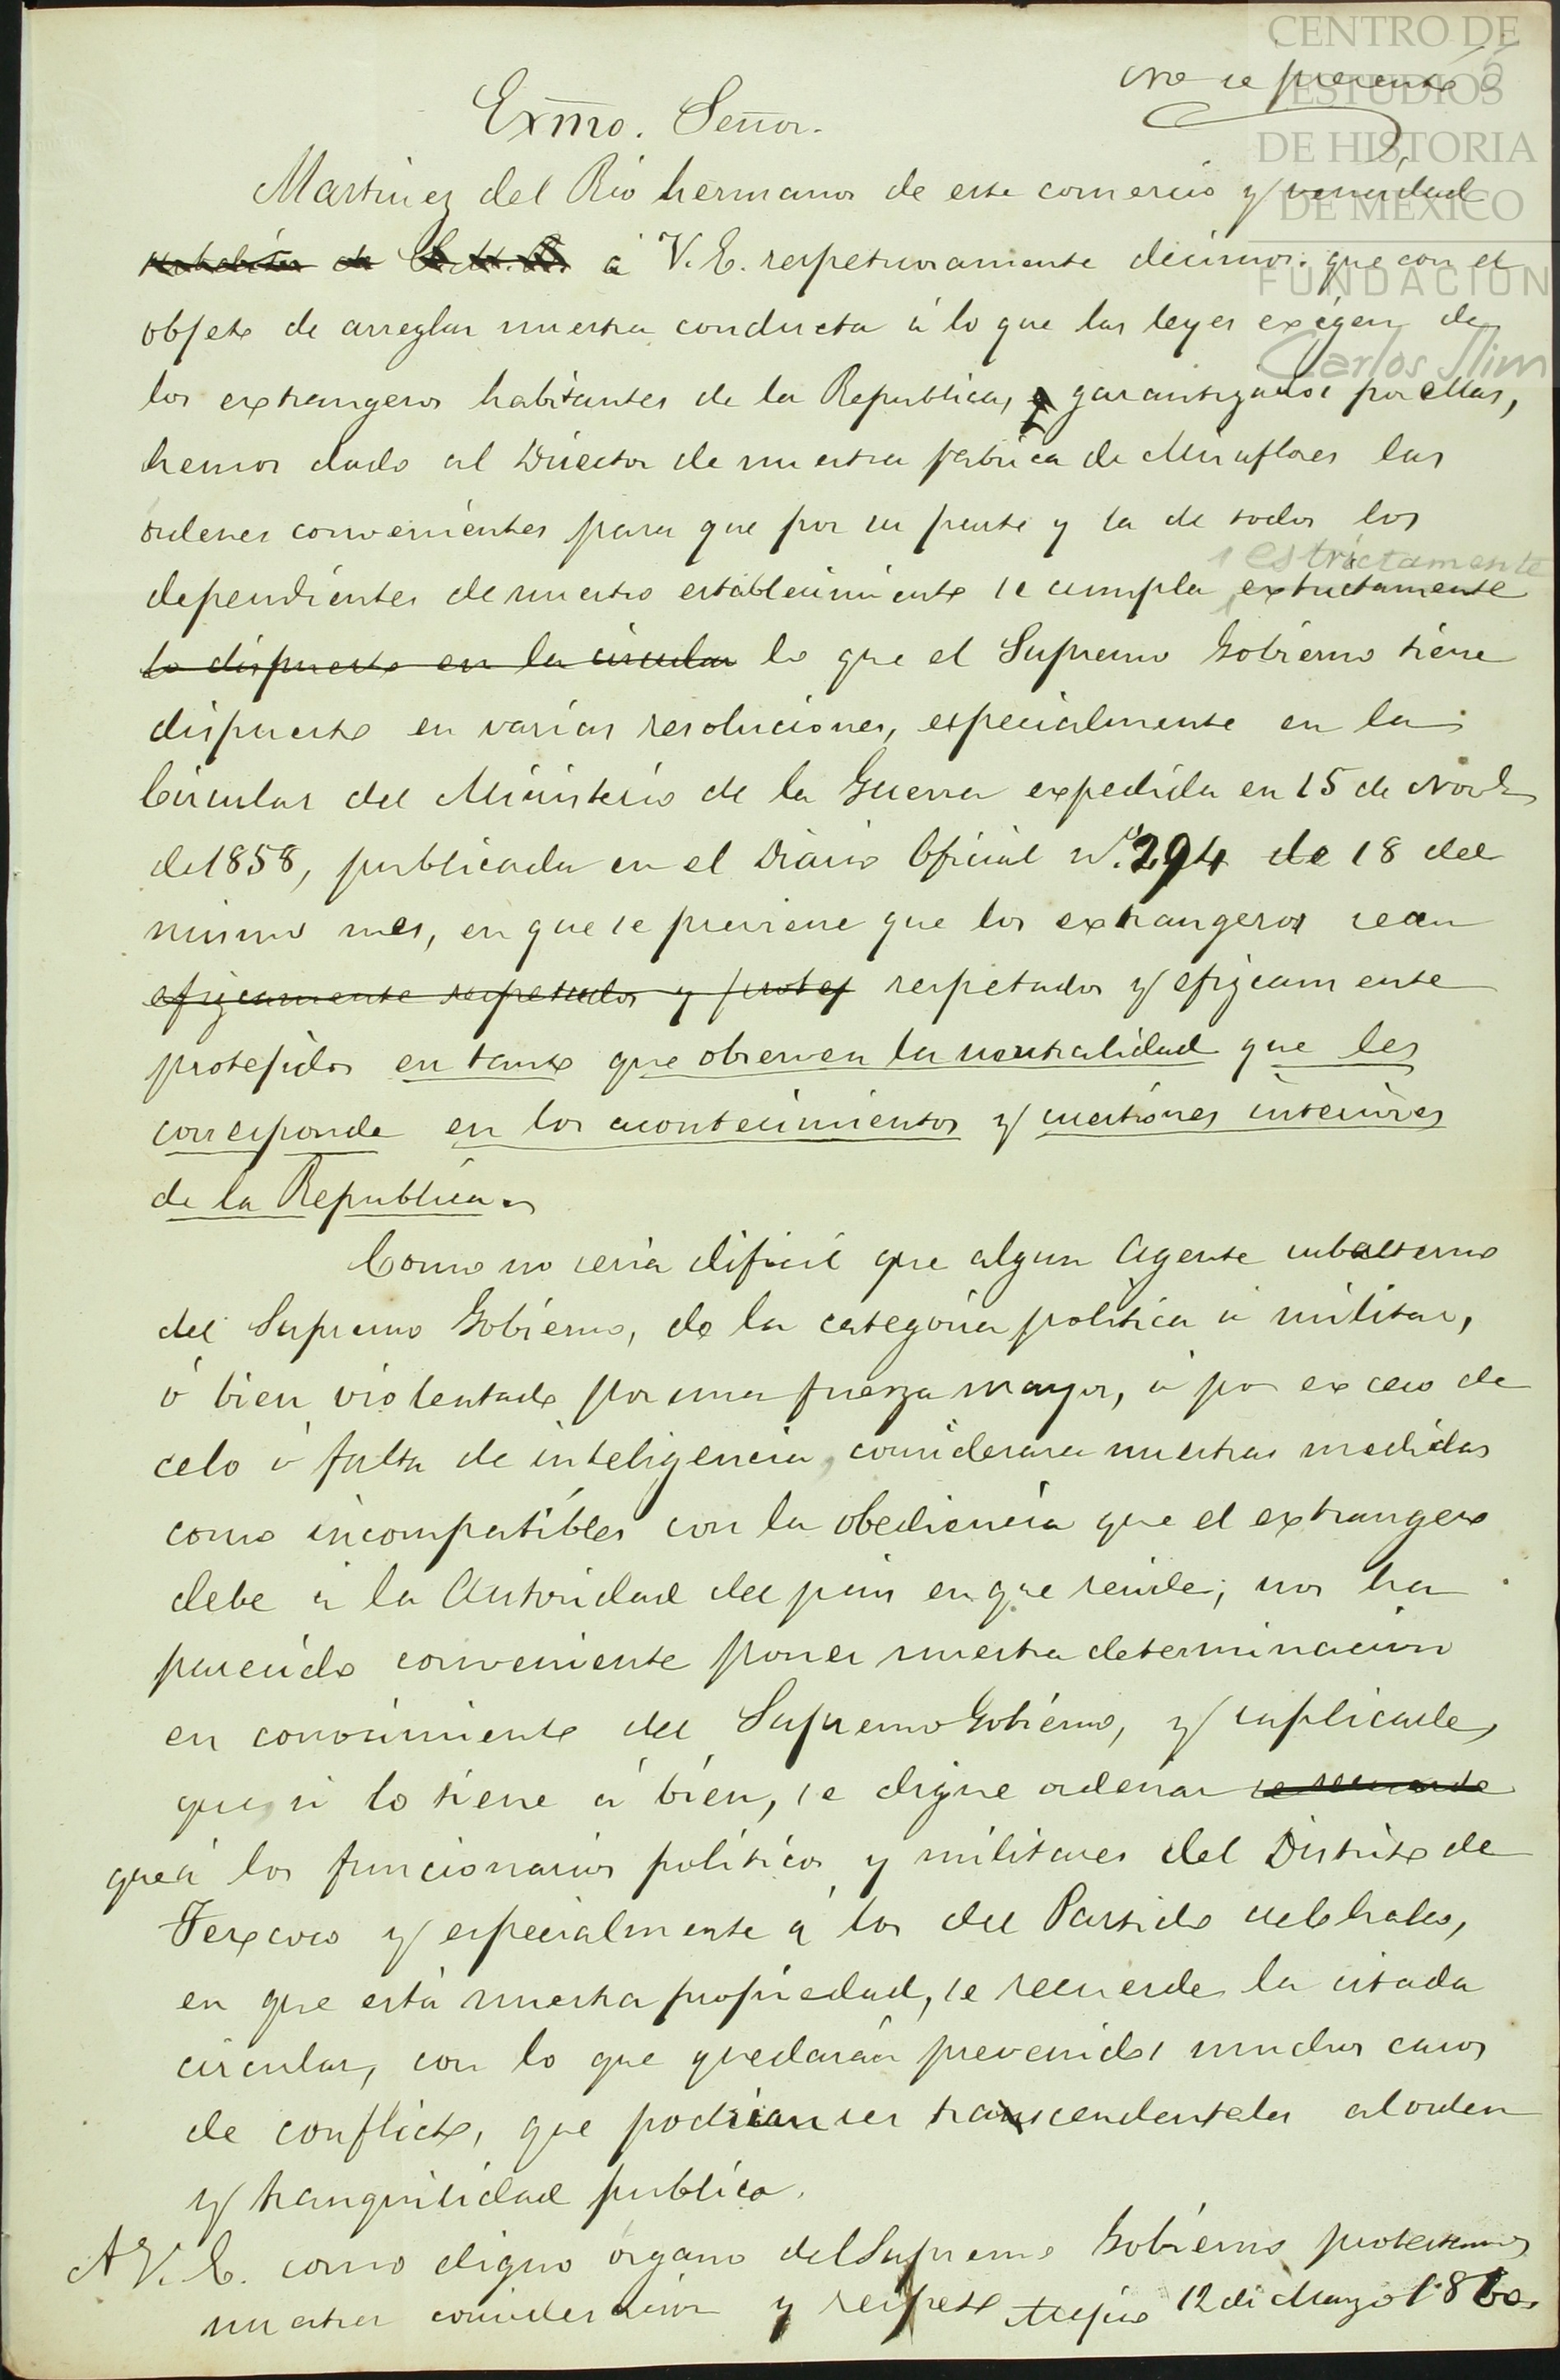 CENTRO DE
ESTUDIOS
DE HISTORIA
DE MÉXICO
FUNDACIÓN
Carlos Slim
No se presentó
Exmo. Señor.
Martinez del Rio hermanos de este comercio y vecindad
á V.E. respetuosamente decimos: que con el
objeto de arreglar nuestra conducta á lo que las leyes exigen de
los extrangeros habitantes de la Republica, y garantizados por ellas,
hemos dado al Director de nuestra fabrica de Miraflores las
ordenes convenientes para que por su parte y la de todos los
estrictamente
dependientes de nuestro establecimiento se cumpla extrictamente
lo dispuesto en la circular lo que el Supremo Gobierno tiene
dispuesto en varias resoluciones, especialmente en la
Circular del Ministerio de la Guerra expedida en 15 de Novb
de 1858, publicada en el Diario Oficial N.º 294 de 18 del
mismo mes, en que se previene que los extrangeros sean
eficazmente respetados y protej respetados y eficazmente
protejidos en tanto que observen la neutralidad que les
corresponde en los acontecimientos y cuestiones interiores
de la Republica.
Como no seria dificil que algun Agente subalterno
del Supremo Gobierno, de la categoria politica ó militar,
ó bien violentado por una fuerza mayor, ó por exceso de
celo ó falta de inteligencia, considerara nuestras medidas
como incompatibles con la obediencia que el extrangero
debe á la Autoridad del pais en que reside; nos ha
parecido conveniente poner nuestra determinacion
en conocimiento del Supremo Gobierno, y suplicarle,
que si lo tiene á bien, se digne ordenar se recuerde
que á los funcionarios politicos y militares del Distrito de
Texcoco y especialmente á los del Partido de Chalco,
en que está nuestra propiedad, se recuerde la citada
circular, con lo que quedarán prevenidos muchos casos
de conflicto, que podrian ser transcendentales al orden
y tranquilidad publica.
A V.E. como digno órgano del Supremo Gobierno protestamos
nuestra consideracion y respeto Mejico 12 de Marzo 1860.